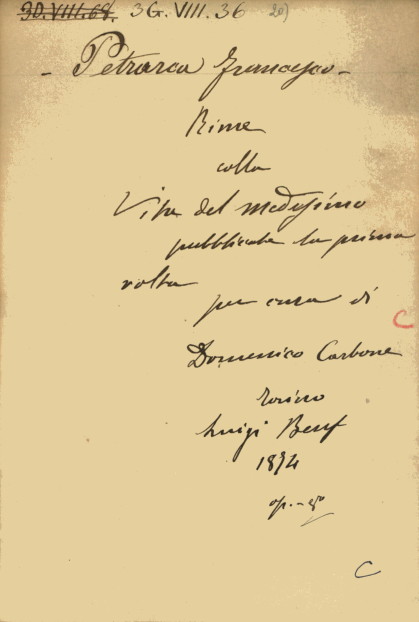 3D.VIII.68. 3G.VIII.36 20)
- Petrarca Francesco -
Rime
colla
Vita del medesimo
pubblicate la prima
volta
per cura di
Domenico Carbone
Torino
Luigi Beuf
1874
C
op.-8º
C